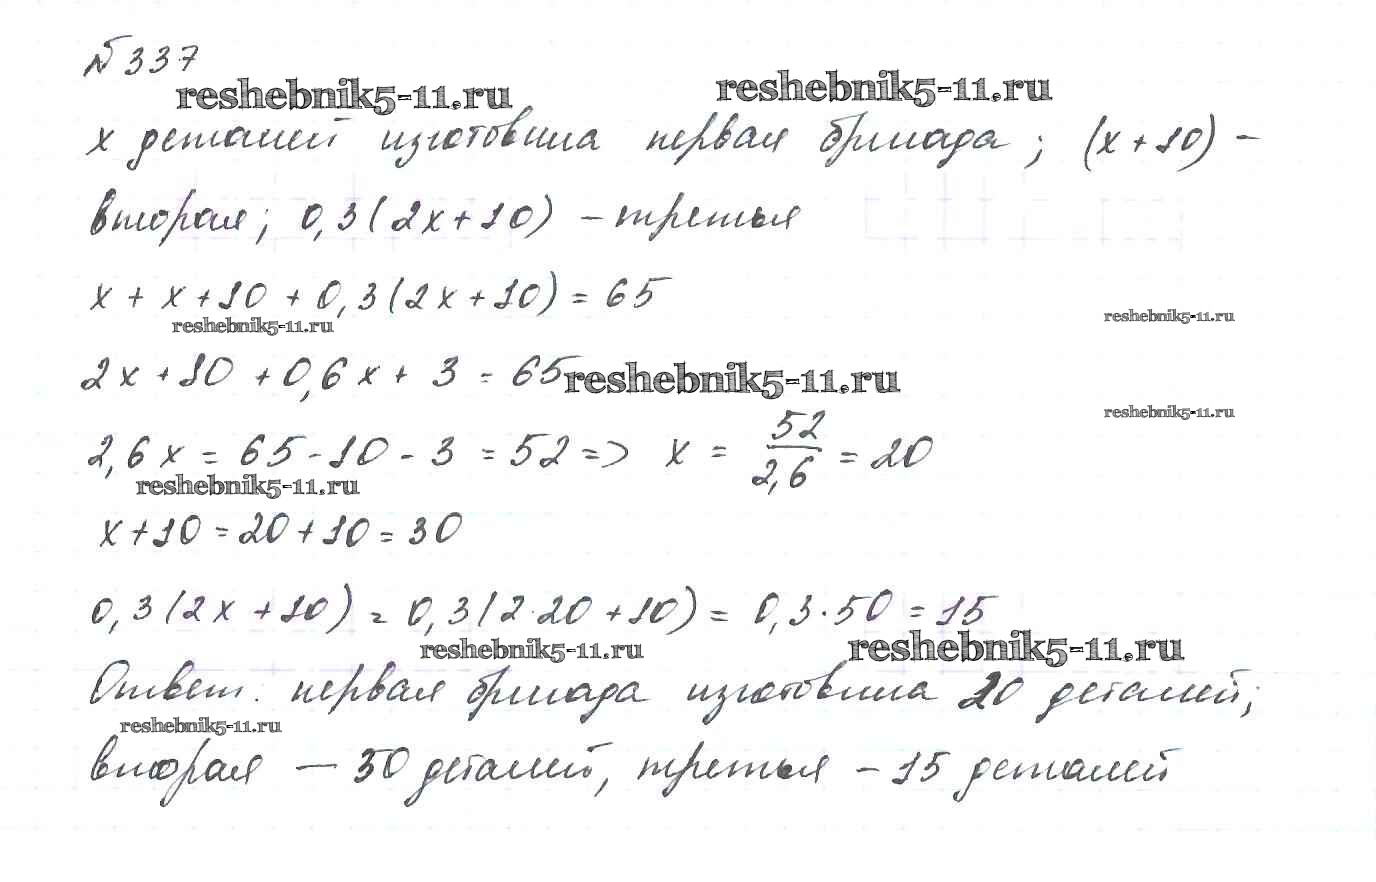 № 337
reshebnik5-11.ru reshebnik5-11.ru
x деталей изготовила первая бригада; (x+10) –
вторая; 0,3(2x+10) – третья
x + x + 10 + 0,3(2x+10) = 65
reshebnik5-11.ru reshebnik5-11.ru
2x + 10 + 0,6x + 3 = 65
reshebnik5-11.ru
reshebnik5-11.ru
2,6x = 65 - 10 - 3 = 52 => x = 52/2,6 = 20
reshebnik5-11.ru
x+10 = 20+10 = 30
0,3(2x+10) = 0,3(2·20+10) = 0,3·50 = 15
reshebnik5-11.ru reshebnik5-11.ru
Ответ. первая бригада изготовила 20 деталей;
reshebnik5-11.ru
вторая — 30 деталей, третья – 15 деталей